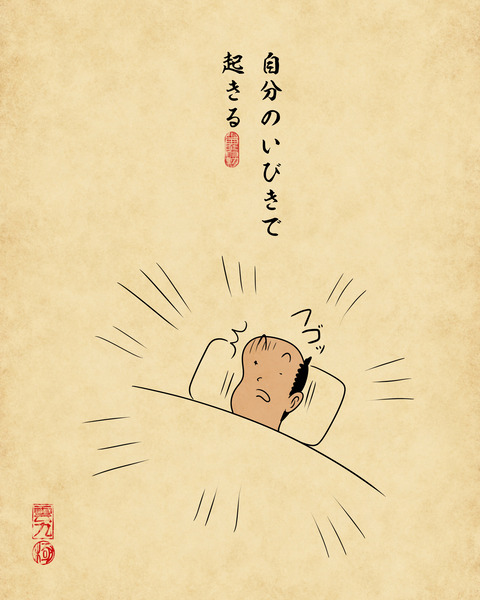 自分のいびきで
起きる
フゴッ